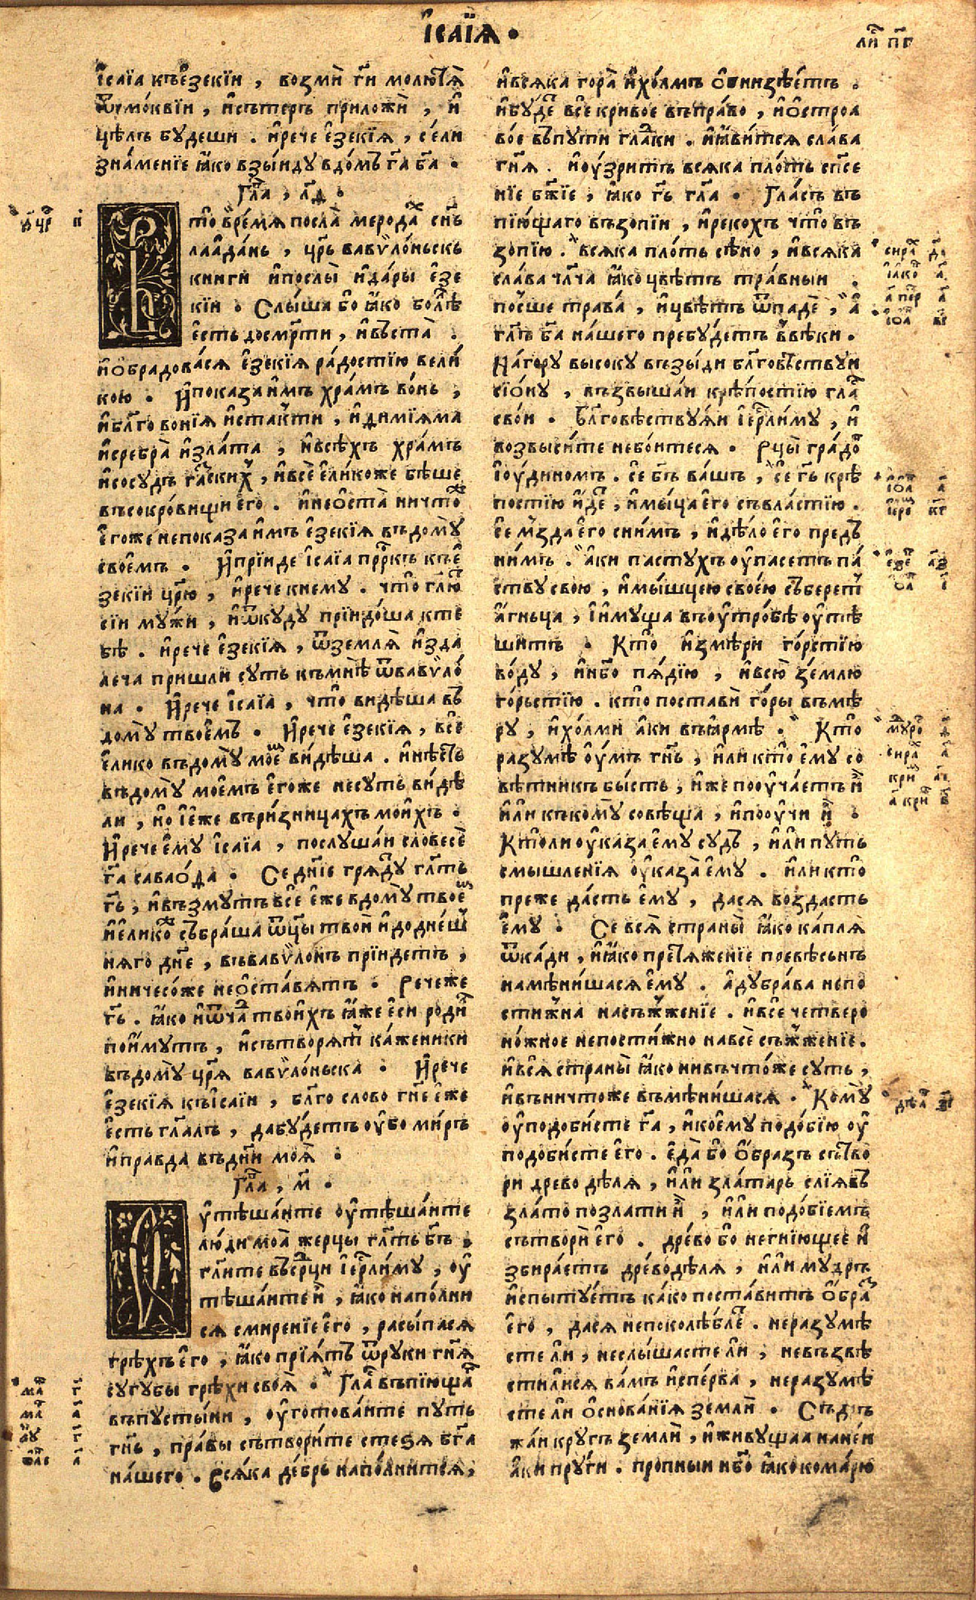 І҆са́їѧ .
ли҃ п҃в
І҆са́їа къ є҆зекїи , возмѝ ѿ молю́тїѧ
ѿ смо́квїи , и҆ сътеръ приложѝ , и҆
цѣлъ будеши . и҆рече є҆зекі́ѧ , се́ли
зна́менїе ꙗ҆ко взы́иду вдо́мъ г҃а б҃а .
Гла҃ , л҃ѳ .
то̀ вре́мѧ посла̀ мерода́х сн҃ъ
лаада́нь , цр҃ь вавѷло́ньскъ
книги и҆послы̀ и҆да́ры є҆зе
кїи . Слы́ша бо ꙗ҆ко боле́
є҆сть до сме́рти , и҆ въста̀ .
и҆ ѻ҆бра́довасѧ є҆зекі́ѧ ра́достїю вели́
кою . И҆ показа и҆мъ хра́мъ во́нь ,
и҆ бл҃гово́нїѧ и҆ста́кти , и҆ димїѧма
и҆ сребра̀ и҆ зла́та , и҆ всѣ́хъ хра́мъ
и҆ сосудъ га҃скихъ , и҆ всѐ є҆ли́коже бѣ́ше
въ сокро́вищи є҆го̀ . и҆ не ѻ҆ста̀ ничто́ж
є҆го́же непоказа и҆мъ є҆зекі́ѧ въ дому̀
свое́мъ . И҆ прїиде і҆са́їа пр҃ркъ къ є҆
зекїи цр҃ю , и҆рече к нему . что̀ гл҃ю
сїи му́жи , и҆ ѿкуду прїидо́ша к те
бѣ . и҆рече є҆зекі́ѧ , ѿ землѧ̀ и҆зда
леча пришли суть къ мнѣ̀ ѿ вавѷло́
на . И҆рече і҆са́їа , что̀ ви́дѣша въ
дому̀ твое́мъ . И҆рече є҆зекі́ѧ , всѐ
є҆ли́ко въ дому̀ мое́м ви́дѣша . и҆ нѣ́сть
въ дому̀ мое́мъ є҆го́же не суть ви́дѣ
ли , но і҆ є҆́же въ ри́зницахъ мои́хъ .
И҆рече є҆му̀ і҆са́їа , послу́шаи словесѐ
г҃а савао́ѳа . Се дн҃їе грѧду́ гл҃тъ
г҃ь , и҆ въ́змутъ всѐ є҆́же в дому̀ твое́м
и҆ є҆ли́ко събра́ша ѿц҃ы твои̑ и҆ до дне́ш
нѧго дн҃е , въ вавѷло́нъ прїидетъ ,
и҆ ничесо́же не ѻ҆ста́вѧтъ . Рече́же
г҃ь . ꙗ҆ко и҆ ѿ ча҃дъ твои́хъ ꙗ҆́же є҆си роди̑
пои́мутъ , и҆ сътворѧ́т ка́женики
въ дому̀ цр҃ѧ вавѷло́ньска . И҆рече
є҆зекі́ѧ къ і҆са́їи , бл҃го сло́во гн҃е є҆́же
є҆сть гл҃алъ , да бу́детъ оу҆бо ми́ръ
и҆ пра́вда въ дн҃и моѧ̀ .
Гла҃ , м҃ .
у҆тѣша́ите оу҆тѣша́ите
лю́ди моа̀ жерцы̀ гл҃тъ б҃ъ .
гл҃ите въ се́рци і҆ерⷭ҇ли́му , оу҆
тѣша́ите и҆̀ , ꙗ҆ко напо́лни
сѧ смире́нїе є҆го̀ , расы́пасѧ
грѣ́хъ є҆го̀ , ꙗ҆ко прїѧ́тъ ѿ руки гн҃ѧ
сугу́бы грѣхи своѧ̀ . Гла҃ въпїю́ща
въ пусты́ни , оу҆гото́ваите пу́ть
гн҃ь , пра́вы сътвори́те стезѧ̀ б҃га
на́шего . Всѧ́ка де́брь напо́лнитсѧ ,
и҆ всѧ́ка гора̀ и҆ хо́лмъ ѻ҆бнизѣ́етъ .
и҆ бу́де всѐ криво́е въ пра́во , и҆ ѻ҆строа
во́е въ пути гла́дки . и҆ ꙗ҆ви́тсѧ сла́ва
гн҃ѧ . и҆ оу҆зри́тъ всѧ́ка пло́ть сп҃се
нїе бж҃їе , ꙗ҆ко г҃ь гл҃а . Гла́съ въ
пїю́щаго възопїи , и҆ реко́хъ что̀ въ
зопїю̀ . всѧ́ка пло́ть сѣ́но , и҆ всѧ́ка
сла́ва чл҃ча ꙗ҆ко цвѣ́тъ тра́вныи .
по́сше трава̀ , и҆ цвѣ́тъ ѿпадѐ , а҆
гл҃ъ б҃а на́шего пребу́детъ въ вѣки .
На го́ру высоку въ́зыди бл҃говѣ́ствуи
сїо́ну , възвыша́и крѣ́постїю гла́с
сво́и . Бл҃говѣствуѧ́и і҆ерⷭ҇ли́му , и҆
возвы́сите не бо́итесѧ . Рцы̀ гра́до
і҆оу́диномъ . се б҃ъ ва́шъ , се г҃ь крѣ́
постїю и҆́де , и҆ мы́шца є҆го̀ съ вла́стїю .
се мъзда̀ є҆го̀ с ни́мъ , и҆ дѣ́ло є҆го̀ пред
ни́мъ . а҆́ки пасту́хъ оу҆пасе́тъ па́
ству свою̀ , и҆ мы́шцею свое́ю събере́т
а҆́гньца , и҆ и҆му́ща въ оу҆тро́бѣ оу҆тѣ́
шитъ . Кто̀ и҆змѣри го́рстїю
во́ду , и҆ не́бо пѧ́дїю , и҆ всю̀ зе́млю
го́рьстїю . кто̀ поста́ви го́ры въ мѣ
ру , и҆ хо́лми а҆ки въ ꙗ҆рмѣ̀ . Кто̀
разумѣ̀ оу҆́мъ гн҃ь , и҆ли кто̀ є҆му̀ со
вѣ́тникъ бы́сть , и҆́же поу҆ча́етъ и҆̀
и҆ли къ кому̀ совѣща , и҆ поу҆чи и҆̀ .
Кто ли оу҆каза є҆му̀ су́дъ , и҆ли пу́ть
смышле́нїа оу҆каза̀ є҆му̀ . и҆ли кто̀
пре́же да́сть є҆му̀ , да сѧ возда́сть
є҆му̀ . Се всѧ̀ страны̀ ꙗ҆ко ка́плѧ
ѿ ка́ди , и҆ ꙗ҆ко претѧже́нїе превѣ́сьнъ
намѣни́шасѧ є҆му̀ . а҆ дубра́ва непо
сти́жна на съжже́нїе . и҆ всѐ четверо
но́жное непости́жно на всѐ съжже́нїе .
и҆ всѧ̀ страны̀ ꙗ҆ко ни въ что́же су́ть ,
и҆ въ ничто́же въмѣни́шасѧ . Кому̀
оу҆подо́бисте г҃а , и҆ ко́ему подо́бїю оу҆
подо́бисте є҆го̀ . є҆да̀ бо ѻ҆́бразъ сътво
ри древодѣ́лѧ , и҆ли зла́тарь слїѧ́въ
зла́то позлати и҆̀ , и҆ли подо́бїемъ
сътвори̑ є҆го̀ . дре́во бо не гнїю́щее и҆
збира́етъ древодѣ́лѧ , и҆ли му́дръ
и҆спыту́етъ ка́ко поста́витъ ѻ҆бра́з
є҆го̀ , да сѧ не поколѣ́блет . не разумѣ́
сте ли , не слы́шасте ли , не възвѣ
сти́лисѧ ва́мъ и҆спе́рва , не разумѣ́
сте ли ѻ҆снова́нїѧ земли̑ . Съдръ
жа́и кру́гъ земли̑ , и҆ живу́щаа на не́и
а҆ки пру́ги . пропны́и не́бо ꙗ҆ко кома́рю